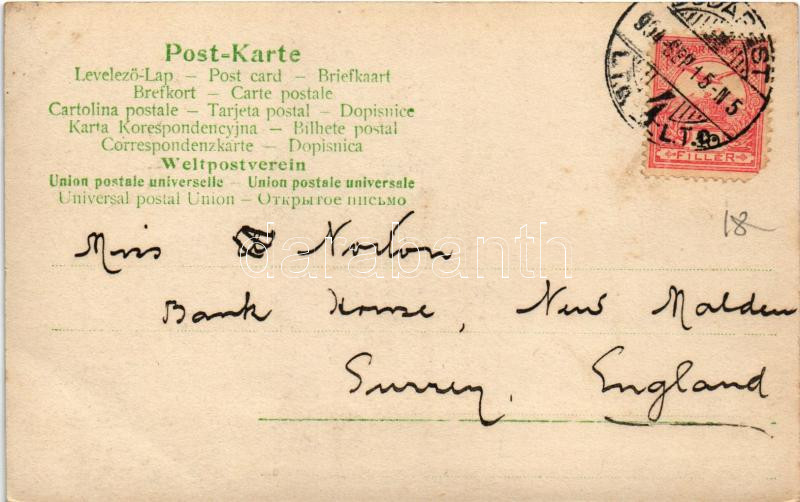 Post-Karte
Levelező-Lap — Post card — Briefkaart
Brefkort — Carte postale
Cartolina postale — Tarjeta postal — Dopisnice
Karta Korespondencyjna — Bilhete postal
Correspondenzkarte — Dopisnica
Weltpostverein
Union postale universelle — Union postale universale
Universal postal Union — Открытое письмо
BUDAPEST
L.T.C.
FILLER
18
Miss Norton
Bank House, New Malden
Surrey, England
darabanth